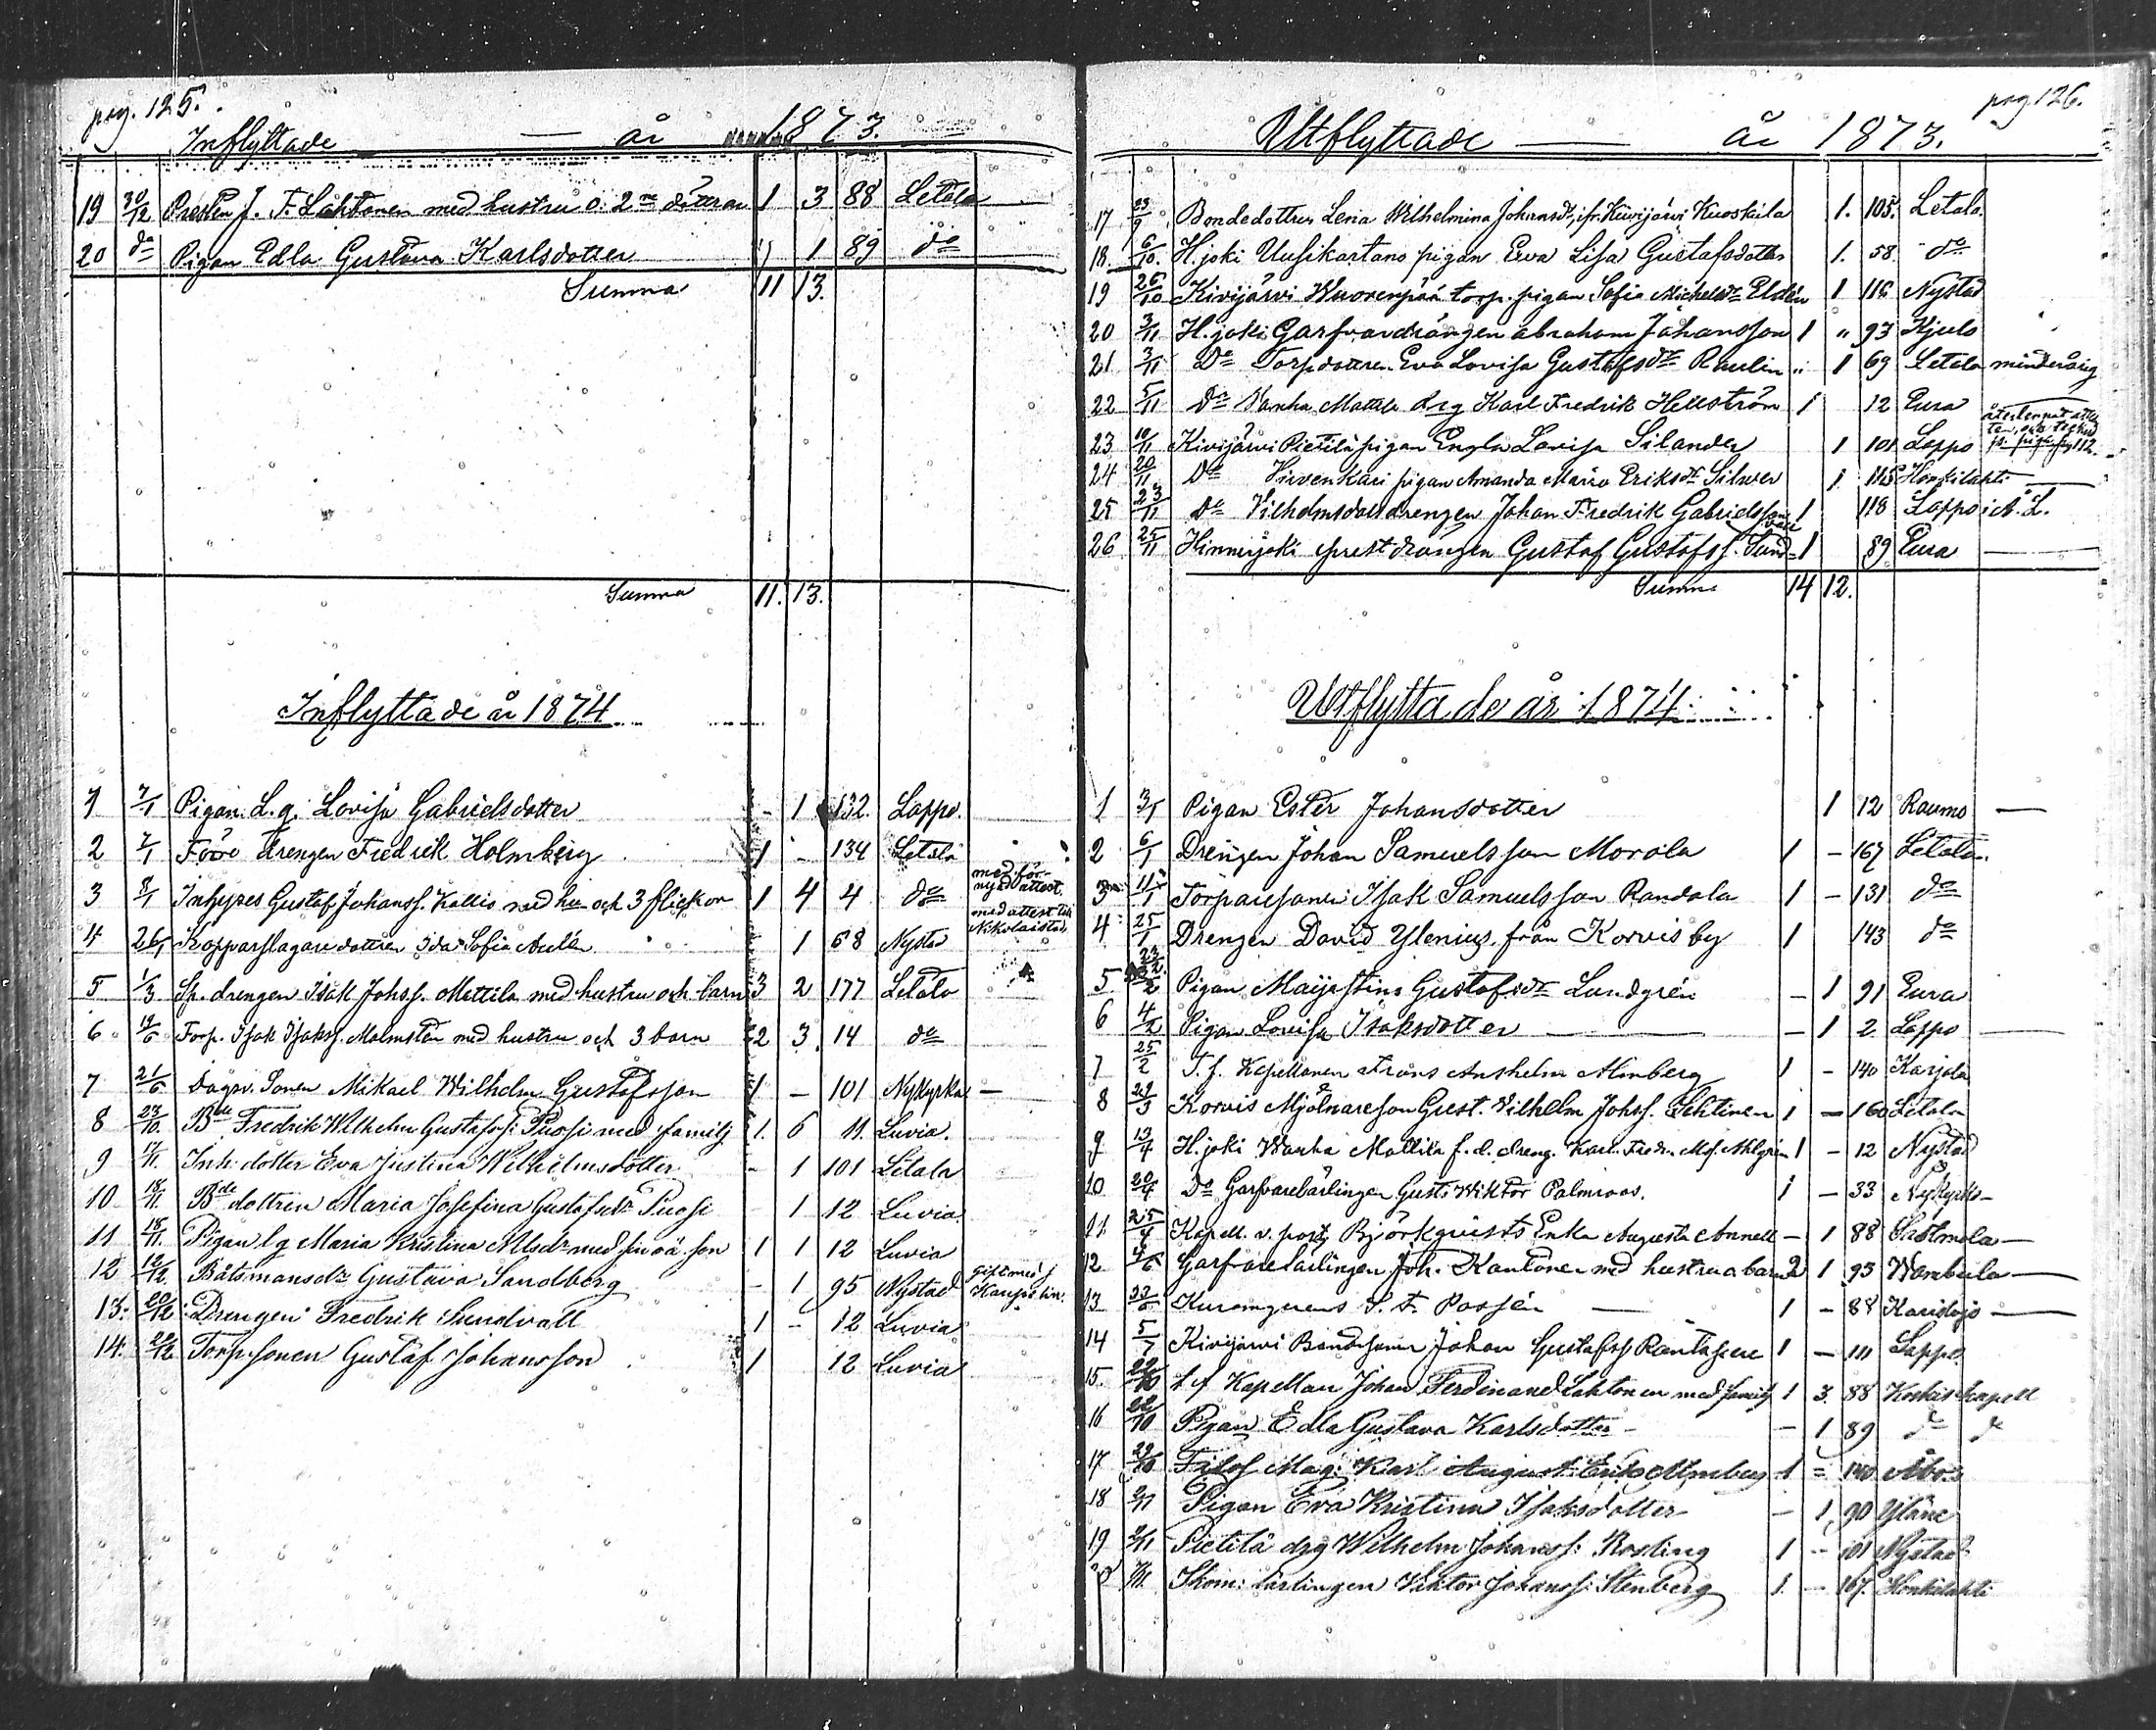 pag. 125.
Inflyttade — år 1873.
19 30/12 Presten J. F. Lahtonen med hustru o. 2ne döttrar 1 3 88 Letala
20 do Pigan Edla Gustava Karlsdotter " 1 89 do
Summa 11 13.
Summa 11. 13.
Inflyttade år 1874
1 7/1 Pigan L. g. Lovisa Gabrielsdotter - 1 132. Lappo.
2 7/1 drengen Fredrik Holmberg 1 - 134 Letala
3 8/1 Inhyses Gustaf Johanss. Kallio med hu och 3 flickor 1 4 4 do med förnyad attest.
4 26/1 Kopparslagare dottren Ida Sofia 1 68 Nystad med attest till Nikolaistad
5 1/3 Sp. drengen Isak Johss. Mattila med hustru och barn 3 2 177 Letala
6 Torp. Isak Isakss. Malmsten med hustru och 3 barn 2 3 14 do
7 21/6 Dagsv. Sonen Mikael Wilhelm Gustafsson 1 — 101 Nykyrka —
8 23/10 Bde Fredrik Wilhelm Gustafss. Puosi med familj 1. 6 11. Luvia.
9 Inh. dotter Eva Justina Wilhelmsdotter - 1 101 Letala
10 18/11 Bde dottren Maria Josefina Gustafsdr Puosi 1 12 Luvia.
11 18/11. Pigan l g Maria Kristina med sin oä. son 1 1 12 Luvia
12 12/12. Båtsmansdr Gustava Sandberg - 1 95 Nystad Gift med
13. 20/12 Drengen Fredrik Sundvall 1 - 12 Luvia
14. Torp. Sonen Gustaf Johansson 1 12 Luvia
pag 126.
Utflyttade — år 1873.
17 23/9 Bondedottren Lena Wilhelmina Johansdr, ifr. Kiivijärvi Kuoskila 1. 105. Letala
18. 6/10. H. joki Uusikartano pigan Eva Lisa Gustafsdotter 1. 58. do
19 26/10 Kivijärvi Wuorenpää torp. pigan Sofia Michelsdr Eldén 1 116 Nystad
20 3/11 H. joki Garfvardrängen Abraham Johansson 1 " 93 Kjulo
21 3/11 Do Torp dottren Eva Lovisa Gustafsdr Raulin " 1 69 Letala minderårig
22 5/11 do Vanha Mattila drg Karl Fredrik Hellström 1 12 Eura
23 10/11 Kivijärvi Pietilä pigan Engla Lovisa Silander 1 101 Lappo
24 20/11 Do Hirvenkari pigan Amanda Maria Eriksdr Silwer 1 115 Honkilahti
25 23/11 do Vilhelmsdals drengen Johan Fredrik Gabrielsson 1 118 Lappo i Å. L.
26 25/11 Hinnerjoki prest drängen Gustaf Gustafss. Sundvall 1 89 Eura —
Summa 14 12.
Utflyttade år 1874
1 3/1 Pigan Ester Johansdotter 1 12 Raumo —
2 6/1 Drengen Johan Samuelsson Morola 1 - 167 Letala.
3 11/1 Torparesonen Isak Samuelsson Randala 1 - 131 do
4 25/1 Drengen David Ylenius från Korvis by 1 143 do
5 Pigan Majastina Gustafsdr Lundgrén - 1 91 Eura
6 4/2 Pigan Lovisa Isaksdotter — - 1 2 Lappo —
7 25/2 T. f. Kapellanen Frans Anshelm Almberg 1 - 140 Karjala
8 29/3 Korvis Mjölnareson Gust. Vilhelm Johss. Lehtinen 1 - 160 Letala
9 13/4 H. joki Wanha Mattila f. d. dreng. Karl Fredr. Ahlgren 1 - 12 Nystad
10 20/4 Do Garfvarelärlingen Gust. Wiktor Palmroos. 1 - 33 Nykyrko —
11. 25/4 Kapell. v. past. Björkqvists Enka Augusta Annett - 1 88 Sastmola —
12 Garfvarelärlingen Joh. Kantonen med hustru a barn 2 1 95 Wambula —
13 S. F. Passén — 1 - 88 Karislojo —
14 5/7 Kivijärvi Bondsonen Johan Gustafss Rantapere 1 - 111 Lappo.
15. 22/10 t f Kapellan Johan Ferdinand Lahtonen med familj 1 3. 88 Koskis kapell
16 22/10 Pigan Edla Gustava Karlsdotter - - 1 89 do do
17 29/10 Filos Mag. Karl August Almberg 1 = 140 Åbo
18 Pigan Eva Kristina Isaksdotter - 1. 90 Yläne
19 Pietilä drg Wilhelm Johanss. Rosling 1 - 101 Nystad
20 Skom: lärlingen Viktor Johanss. Stenberg 1. - 167. Honkilahti